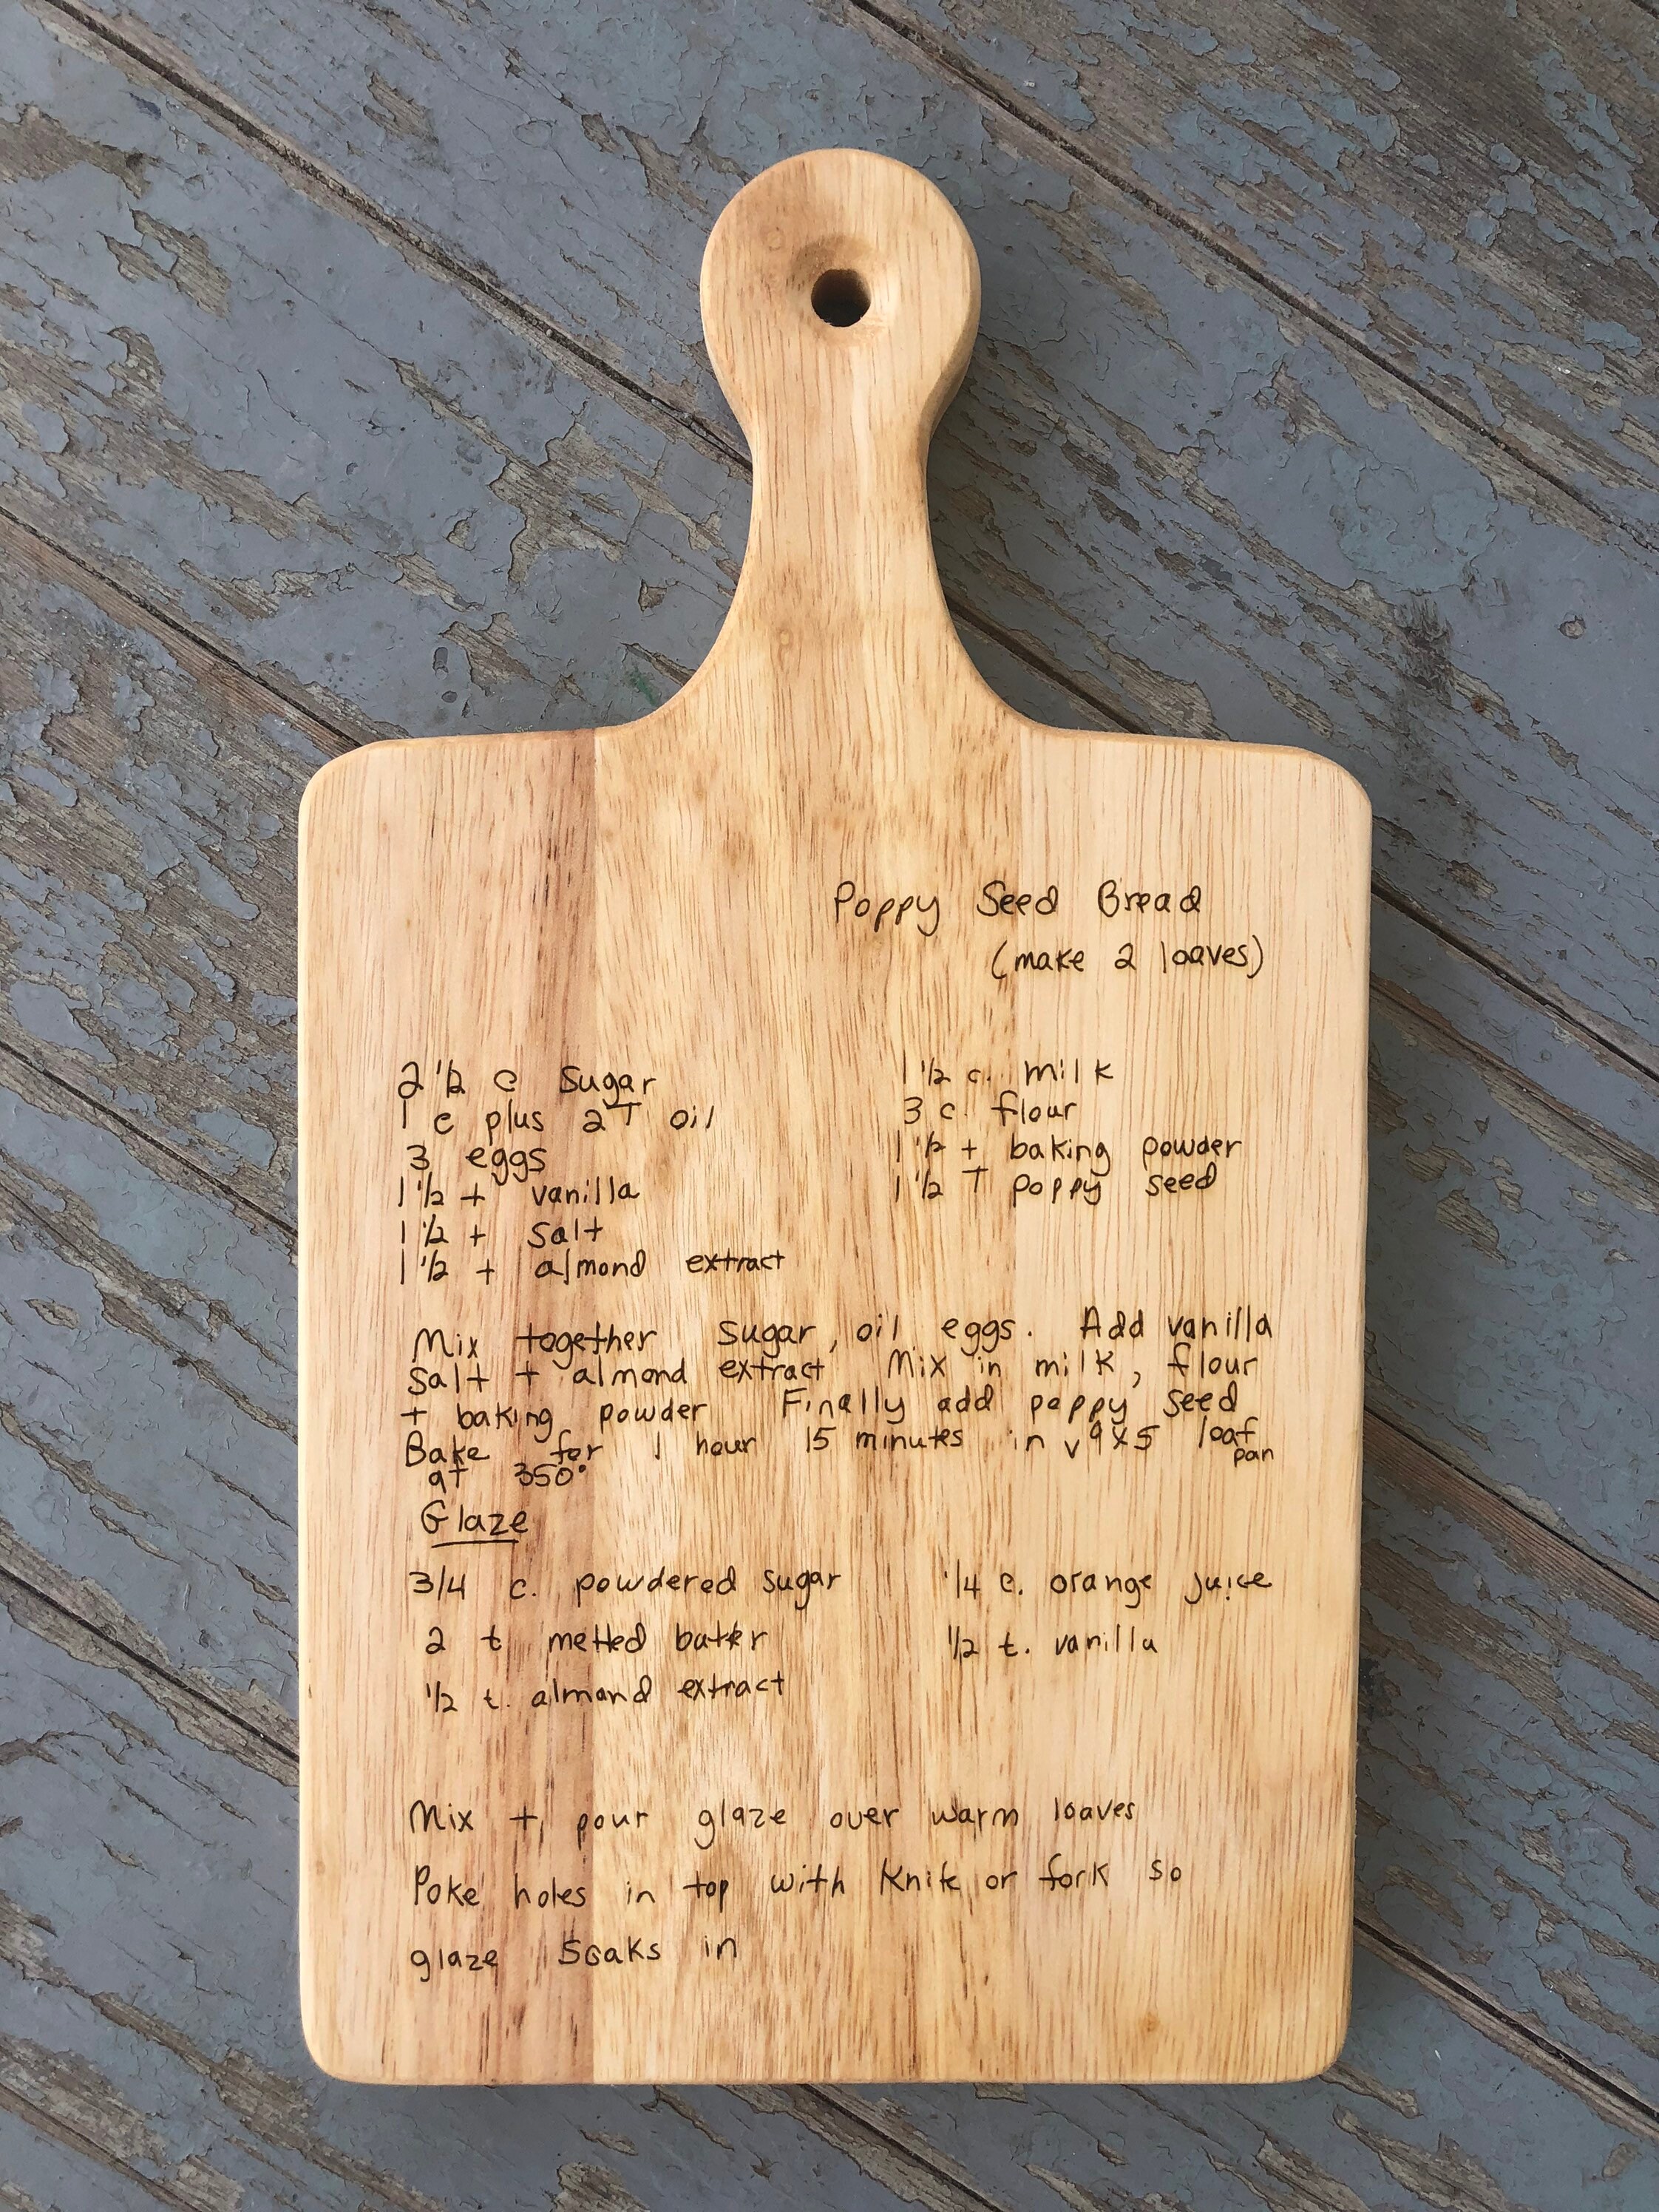 Poppy Seed Bread
(make 2 loaves)
2 1/2 c sugar
1 c plus 2 T oil
3 eggs
1 1/2 t vanilla
1 1/2 t salt
1 1/2 t almond extract
1 1/2 c. milk
3 c. flour
1 1/2 t baking powder
1 1/2 T poppy seed
Mix together sugar, oil eggs. Add vanilla
salt + almond extract Mix in milk, flour
+ baking powder Finally add poppy seed
Bake for 1 hour 15 minutes in 9x5 loaf
pan
at 350°
Glaze
3/4 c. powdered sugar
2 t melted butter
1/2 t. almond extract
1/4 c. orange juice
1/2 t. vanilla
Mix + pour glaze over warm loaves
Poke holes in top with knife or fork so
glaze soaks in